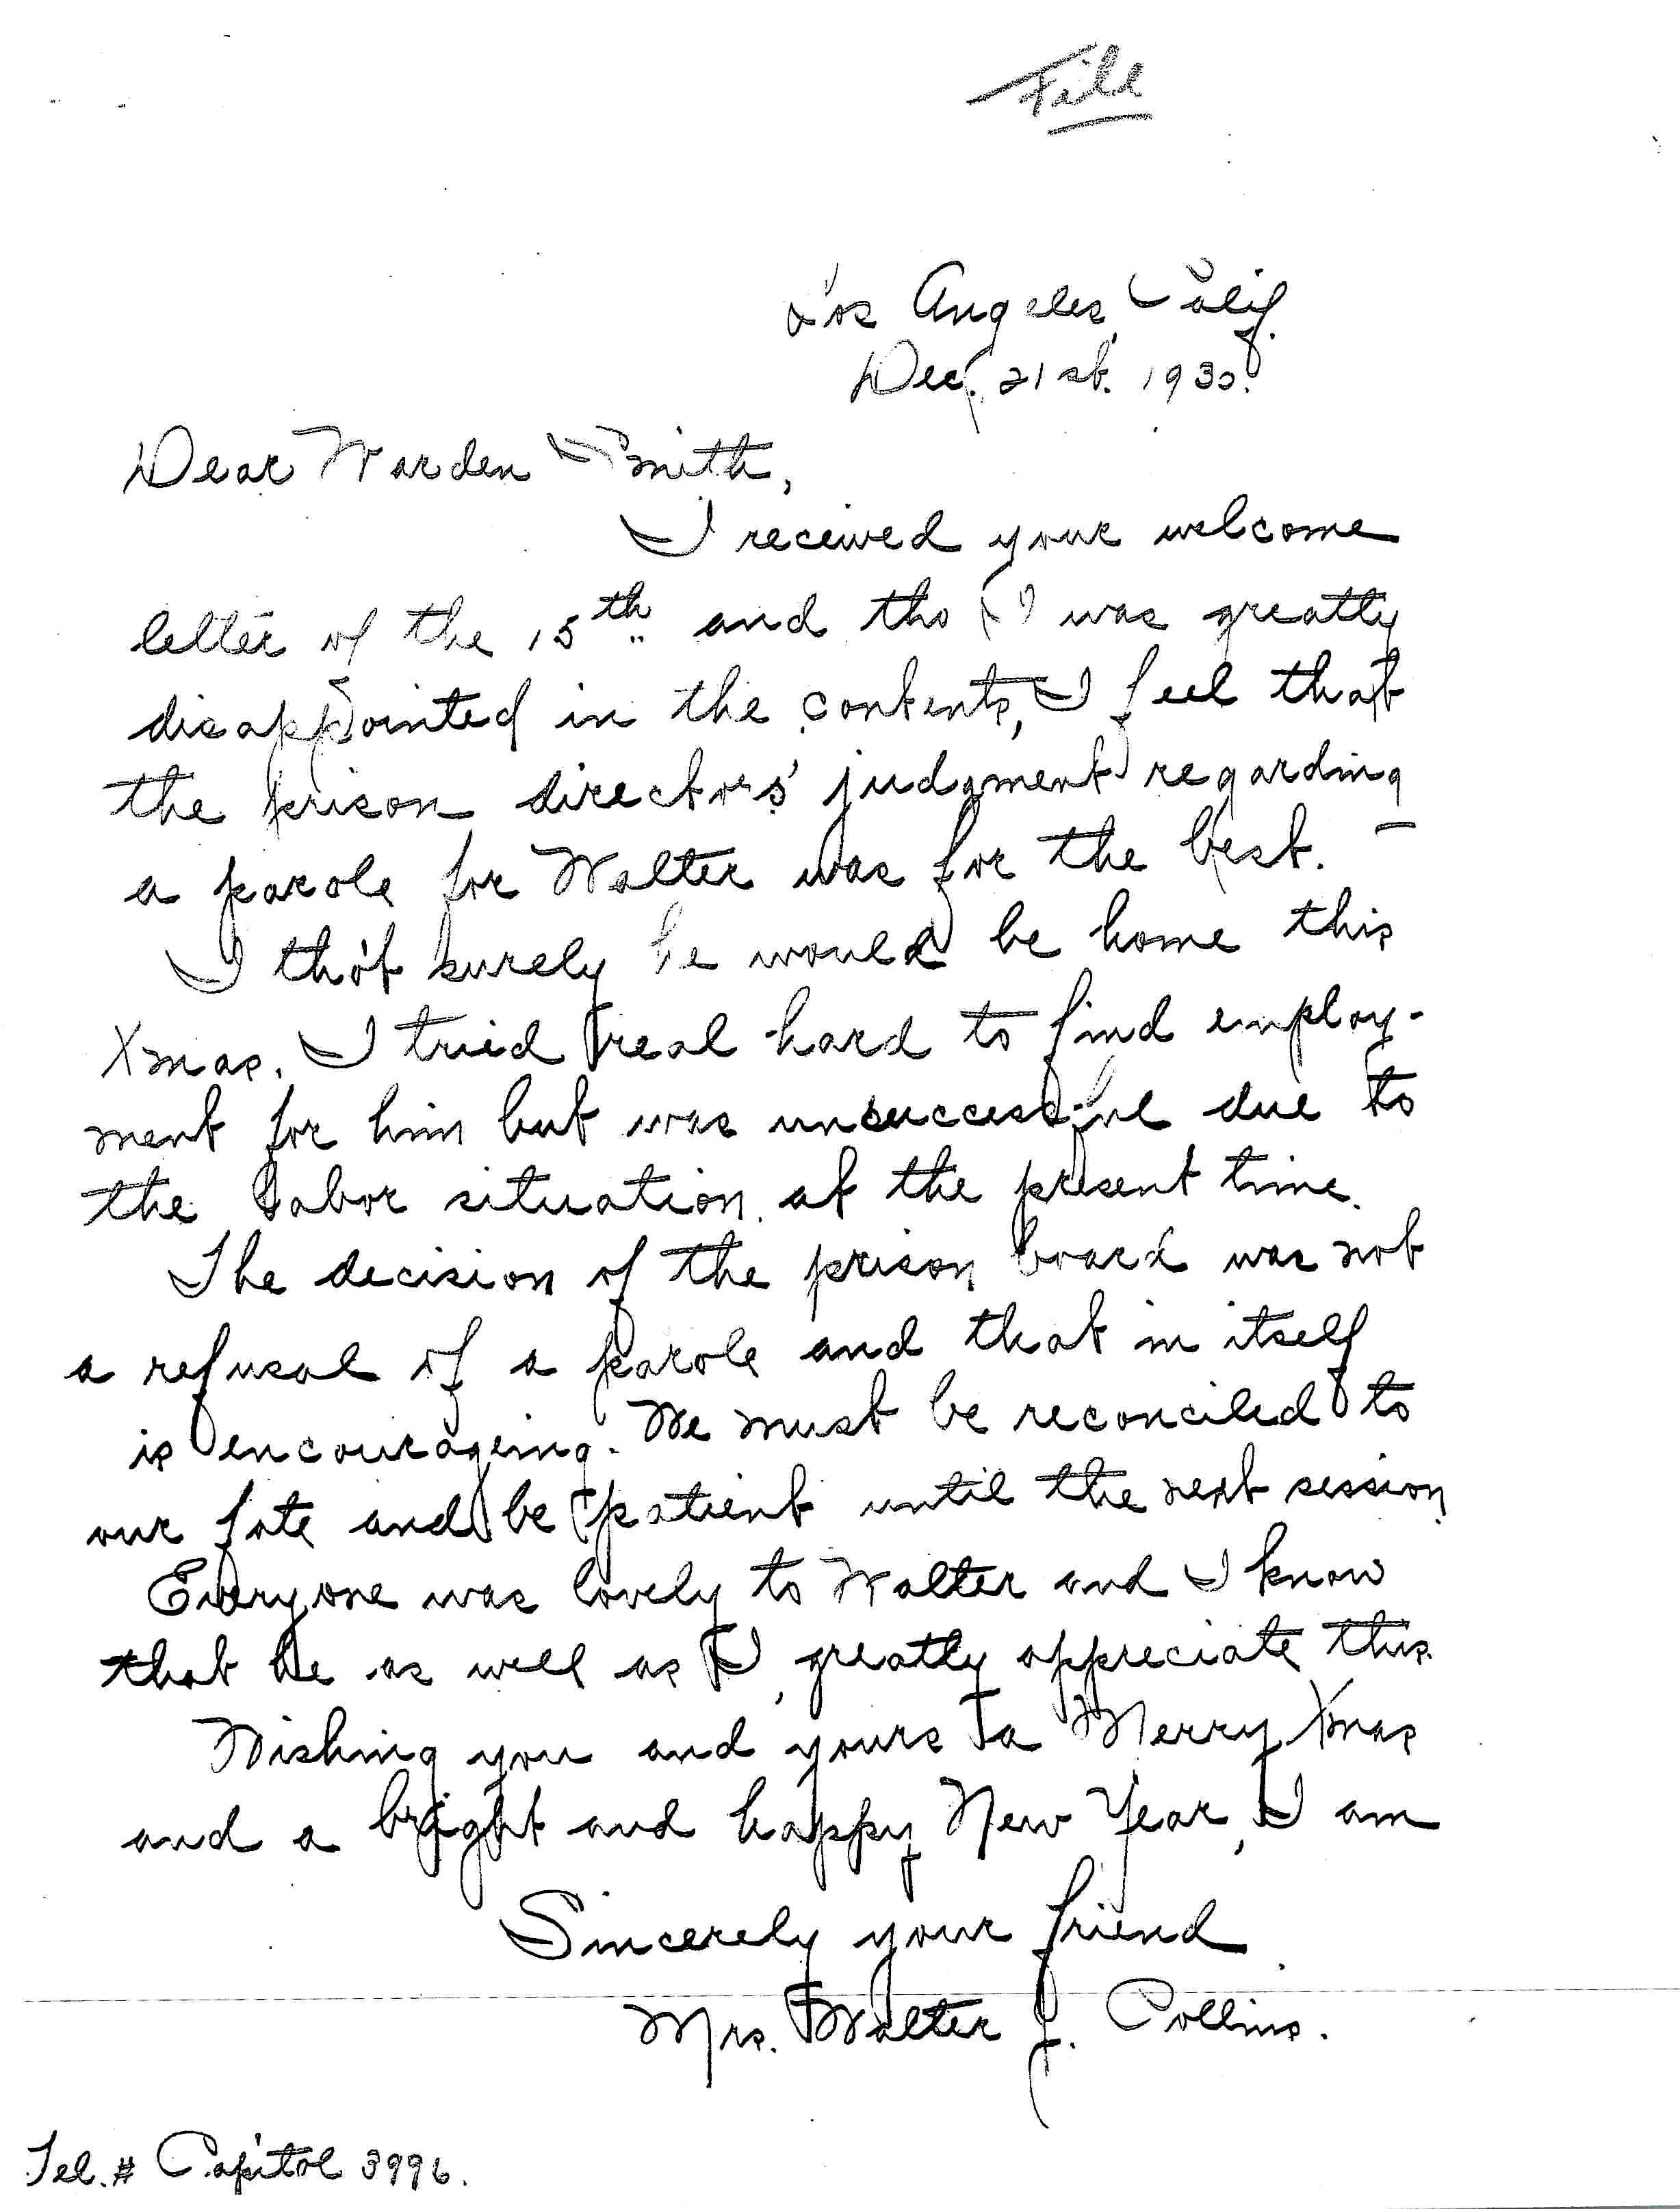 File
Los Angeles, Calif.
Dec. 21st. 1930.
Dear Warden Smith,
I received your welcome
letter of the 15th and tho I was greatly
disappointed in the contents, I feel that
the prison directors' judgment regarding
a parole for Walter was for the best. –
I tho't surely he would be home this
Xmas. I tried real hard to find employ-
ment for him but was unsuccessful due to
the labor situation at the present time.
The decision of the prison board was not
a refusal of a parole and that in itself
is encourageing. We must be reconciled to
our fate and be patient until the next session.
Everyone was lovely to Walter and I know
that he as well as I, greatly appreciate this.
Wishing you and yours a Merry Xmas
and a bright and happy New Year, I am
Sincerely your friend
Mrs. Walter J. Collins.
Tel. # Capitol 3996.